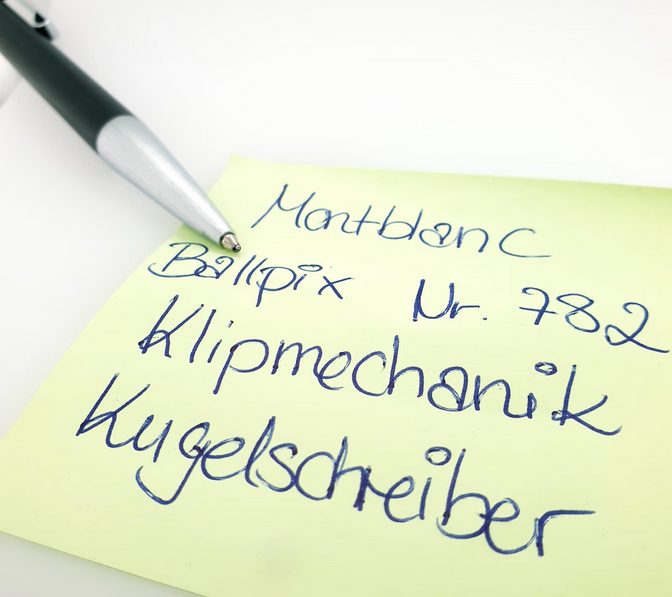 Montblanc
Ballpix Nr. 782
Klipmechanik
Kugelschreiber